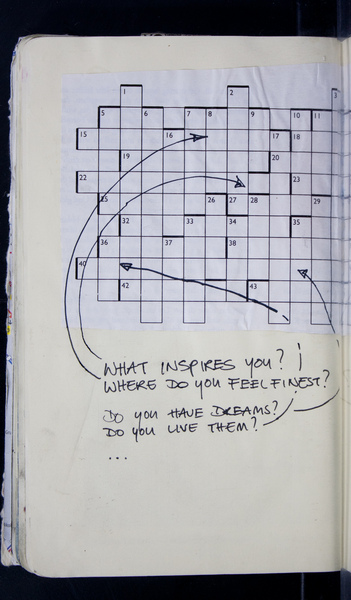 1 2 3
5 6 7 8 9 10 11
15 16 17 18
19 20
22 23
25 26 27 28 29
32 33 34 35
36 37 38
40
42 43
WHAT INSPIRES YOU?
WHERE DO YOU FEEL FINEST?
DO YOU HAVE DREAMS?
DO YOU LIVE THEM?
...